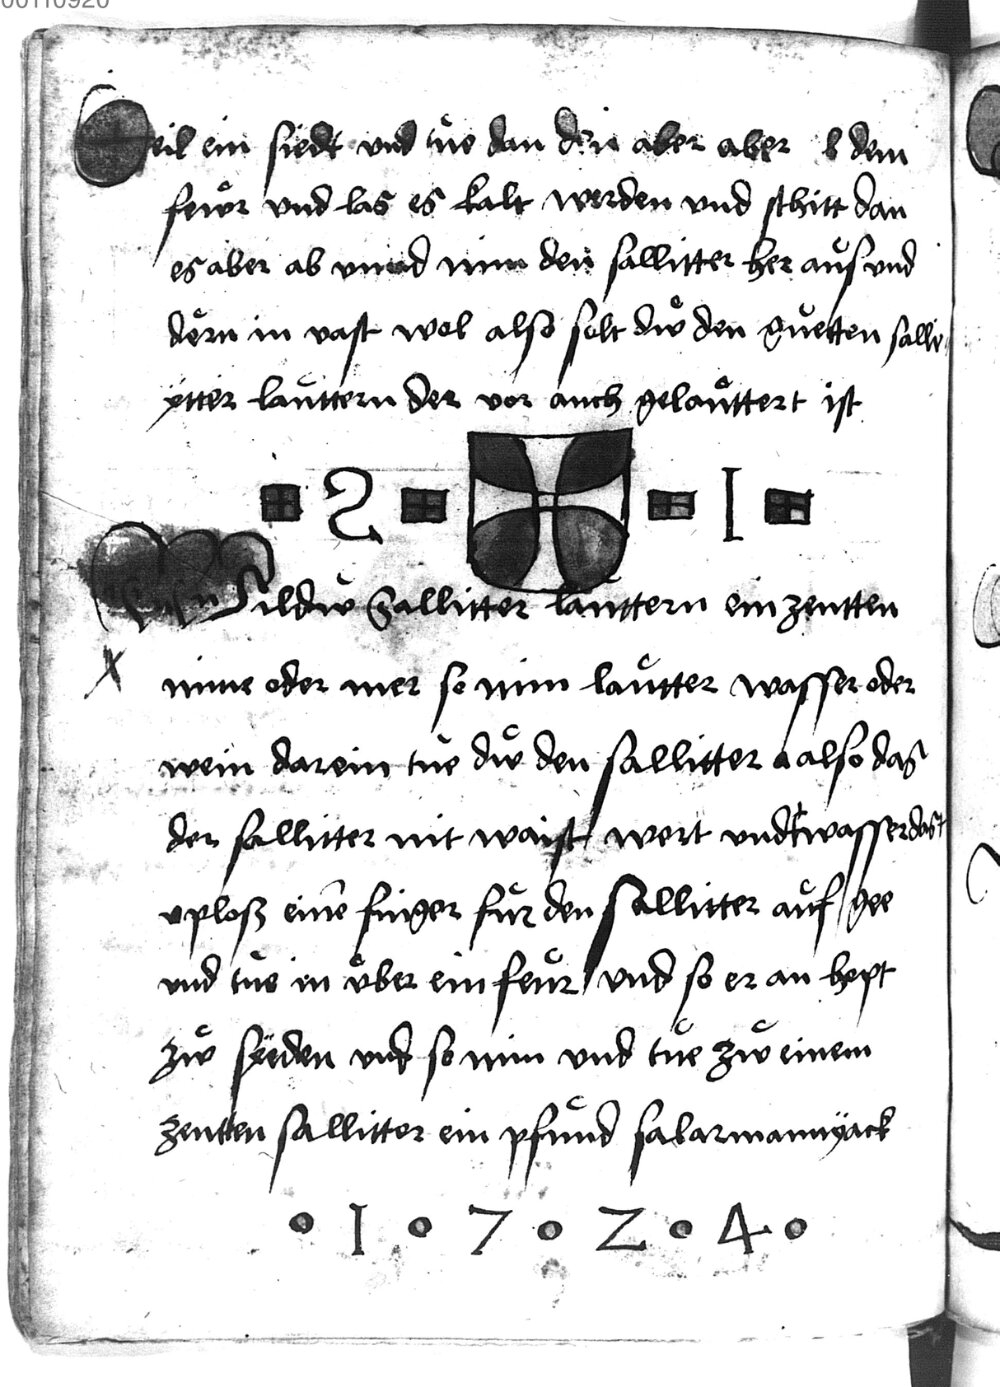 00110920
eil ein siedt und tue dan den aber aber b dem
feẃr und las es kalt werden und schitt dan
es aber ab unnd nim den sallitter her auß und
dörn in vast wol also solt dẃ den guetten salli
ytter lauttern der vor auch gelauttert ist
2 1
Wildẃ Sallitter lauttern ein zentten
nnne oder mer so nim lautter wasser oder
wein darein tue dẃ den sallitter a also das
der sallitter nit waist wert und wasser das
uploß eine finger für den sallitter auf gee
und tue in über ein feur und so er an hept
zẃ syeden und so nim und tue zẃ einem
zentten sallitter ein pfund salarmannyack
1 7 2 4